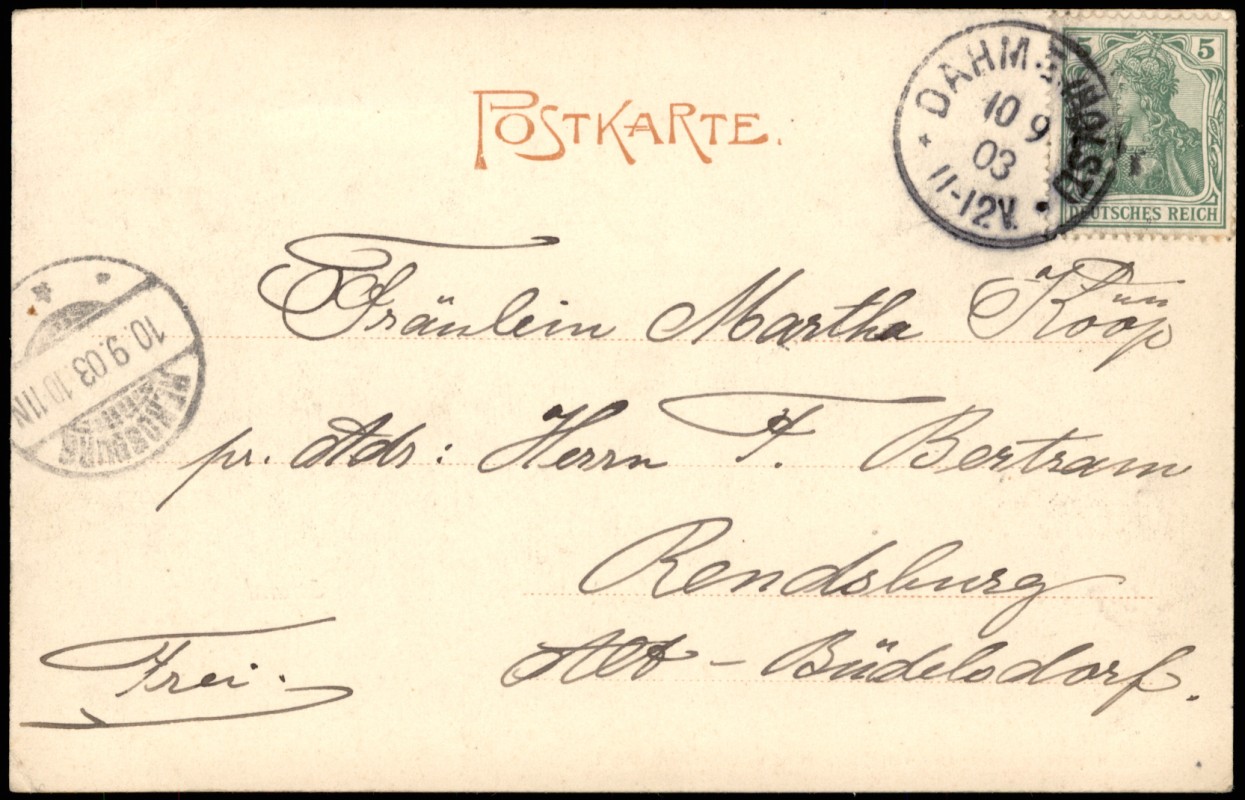 POSTKARTE.
5 5
DEUTSCHES REICH
DAHM
10 9
03
11-12V.
Fräulein Martha Koop
pr. Adr: Herrn F. Bertram
Rendsburg
Alt-Büdelsdorf.
Frei.
10.9.03.10-11N